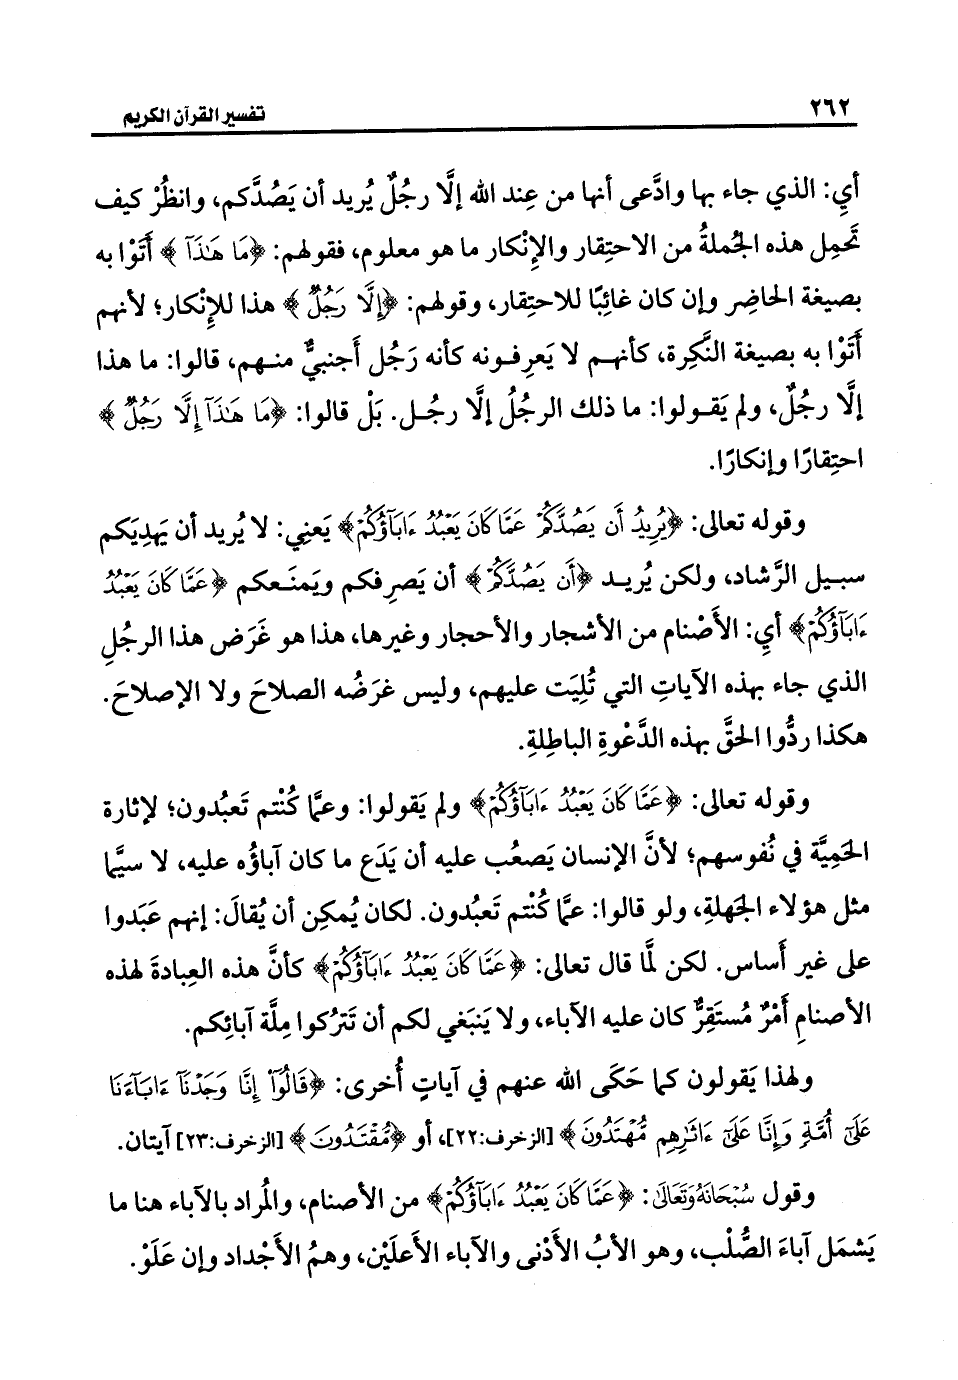 ٢٦٢
تفسير القرآن الكريم
أيِ: الذي جاء بها وادَّعى أنها من عِند الله إلَّا رجُلٌ يُريد أن يَصُدَّكم، وانظُرْ كيف
تَحمِل هذه الجُملةُ من الاحتِقار والإِنْكار ما هو معلوم، فقولهم: ﴿مَا هَٰذَآ﴾ أَتَوْا به
بصيغة الحاضِر وإن كان غائِبًا للاحتِقار، وقولهم: ﴿إِلَّا رَجُلٌ﴾ هذا للإِنْكار؛ لأنهم
أَتَوْا به بصيغة النَّكِرة، كأنهم لا يَعرِفونه كأنه رَجُل أَجنبيٌّ منهم، قالوا: ما هذا
إلَّا رجُلٌ، ولم يَقولوا: ما ذلك الرجُلُ إلَّا رجُل. بَلْ قالوا: ﴿مَا هَٰذَآ إِلَّا رَجُلٌ﴾
احتِقارًا وإنكارًا.
وقوله تعالى: ﴿يُرِيدُ أَن يَصُدَّكُمْ عَمَّا كَانَ يَعْبُدُ ءَابَآؤُكُمْ﴾ يَعنِي: لا يُريد أن يَهدِيَكم
سبيل الرَّشاد، ولكن يُريد ﴿أَن يَصُدَّكُمْ﴾ أن يَصرِفكم ويَمنَعكم ﴿عَمَّا كَانَ يَعْبُدُ
ءَابَآؤُكُمْ﴾ أيِ: الأَصْنام من الأشجار والأحجار وغيرها، هذا هو غَرَض هذا الرجُلِ
الذي جاء بهذه الآياتِ التي تُلِيَت عليهم، وليس غرَضُه الصلاحَ ولا الإصلاحَ.
هكذا ردُّوا الحقَّ بهذه الدَّعْوةِ الباطِلةِ.
وقوله تعالى: ﴿عَمَّا كَانَ يَعْبُدُ ءَابَآؤُكُمْ﴾ ولم يَقولوا: وعمَّا كُنْتم تَعبُدون؛ لإثارة
الحَمِيَّة في نُفوسهم؛ لأنَّ الإنسان يَصعُب عليه أن يَدَع ما كان آباؤُه عليه، لا سيَّما
مثل هؤلاء الجَهلةِ، ولو قالوا: عمَّا كُنْتم تَعبُدون. لكان يُمكِن أن يُقالَ: إنهم عَبَدوا
على غير أَساس. لكن لمَّا قال تعالى: ﴿عَمَّا كَانَ يَعْبُدُ ءَابَآؤُكُمْ﴾ كأنَّ هذه العِبادةَ لهذه
الأصنامِ أَمْرٌ مُستَقِرٌّ كان عليه الآباء، ولا يَنبَغي لكم أن تَترُكوا مِلَّة آبائِكم.
ولهذا يَقولون كما حَكَى الله عنهم في آياتٍ أُخرى: ﴿قَالُوٓا۟ إِنَّا وَجَدْنَآ ءَابَآءَنَا
عَلَىٰٓ أُمَّةٍ وَإِنَّا عَلَىٰٓ ءَاثَٰرِهِم مُّهْتَدُونَ﴾ [الزخرف:٢٢]، أو ﴿مُّقْتَدُونَ﴾ [الزخرف:٢٣] آيتان.
وقول سُبْحَانَهُ وَتَعَالَىٰ: ﴿عَمَّا كَانَ يَعْبُدُ ءَابَآؤُكُمْ﴾ من الأصنام، والمُراد بالآباء هنا ما
يَشمَل آباءَ الصُّلْب، وهو الأبُ الأَدْنى والآباء الأَعلَيْن، وهمُ الأَجْداد وإن عَلَوْ.